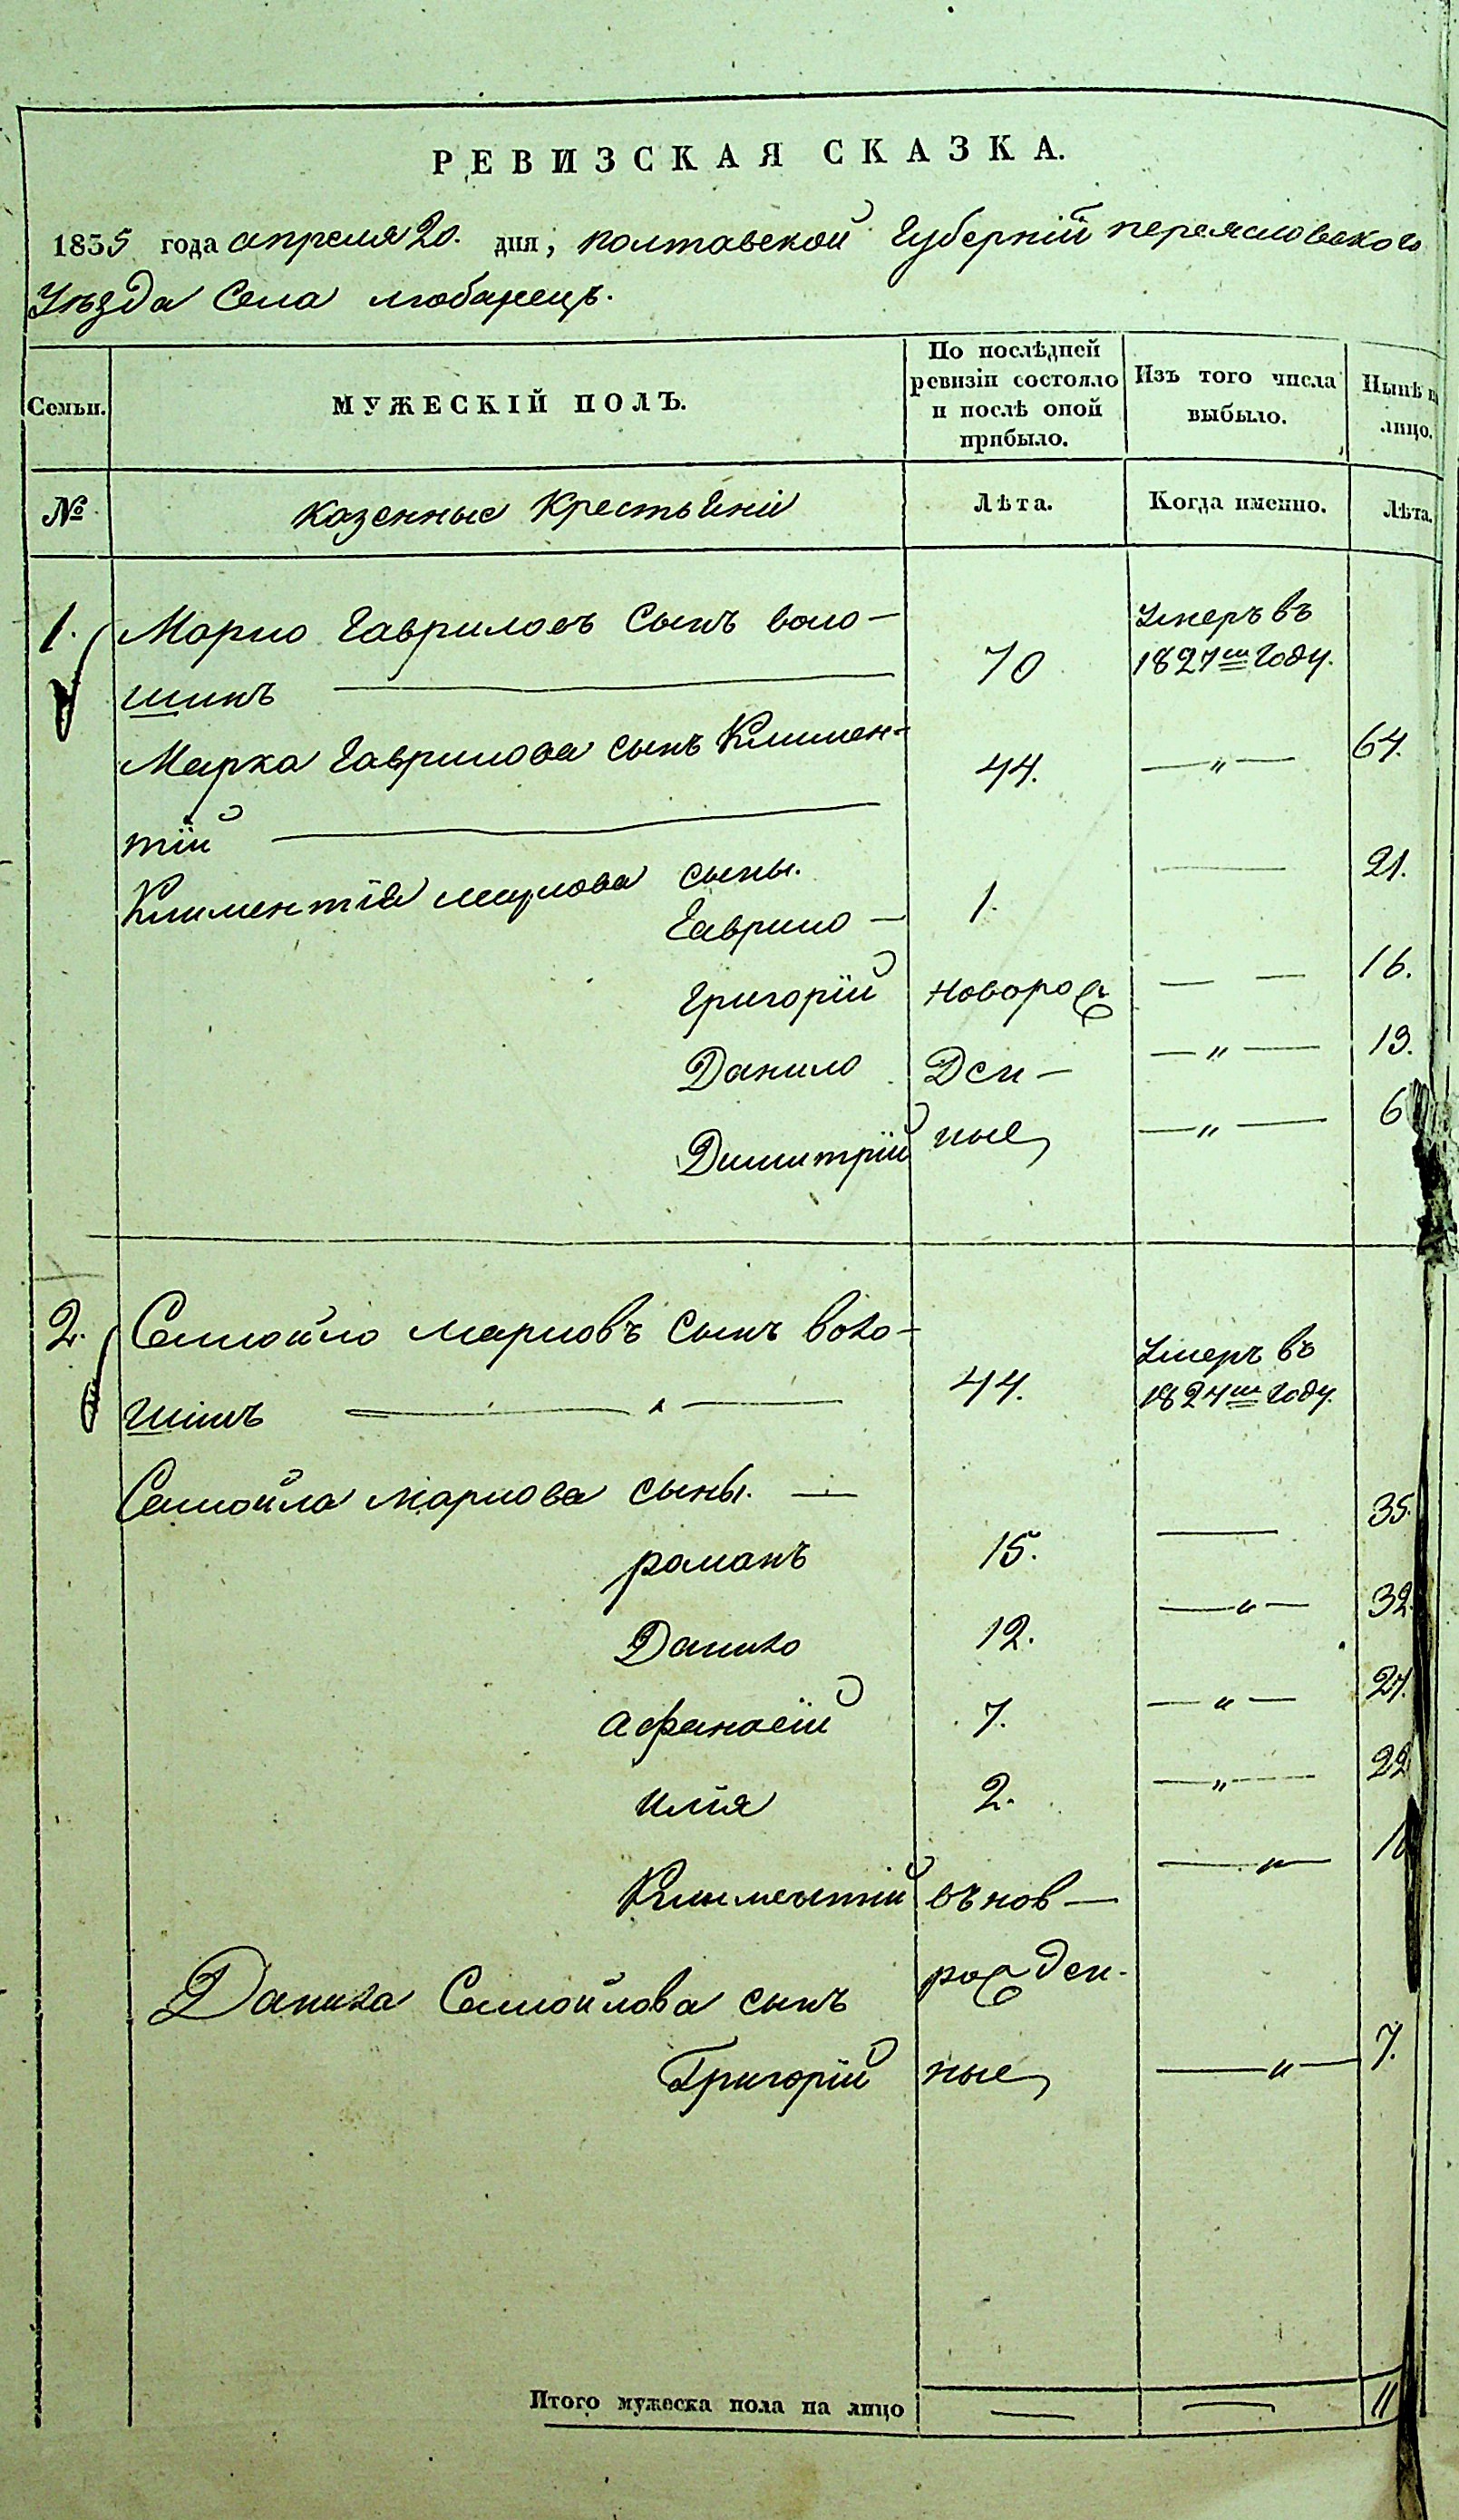 РЕВИЗСКАЯ СКАЗКА.
1835 года апреля 20. дня, полтавской Губерній переясловского
Уѣзда Села любарецъ.
Семьи.
МУЖЕСКІЙ ПОЛЪ.
По послѣдней
ревизіи состояло
и послѣ оной
прибыло.
Изъ того числа
выбыло.
Нынѣ на
лицо.
№
казенные Крестьяні
Лѣта.
Когда именно.
Лѣта.
1. Марко Гавриловъ Сынъ воло-
шинъ 70 Умеръ въ
1827м Году.
Марка Гаврилова сынъ Климен-
тій 44. 64.
Климентія маркова сыны.
Гаврило 1. 21.
Григорій новорож 16.
Данило Ден- 13.
Димитрій ные 6
2. Самойло марковъ Сынъ воло-
шинъ 44. Умеръ въ
1824м Году.
Самойла маркова сыны.
романъ 15. 35.
Данило 12. 32.
афанасій 7. 27.
илія 2. 22
Климентій вънов-
рожден-
Данила Самойлова сынъ
Григорій ные 7.
Итого мужеска пола на лицо 11